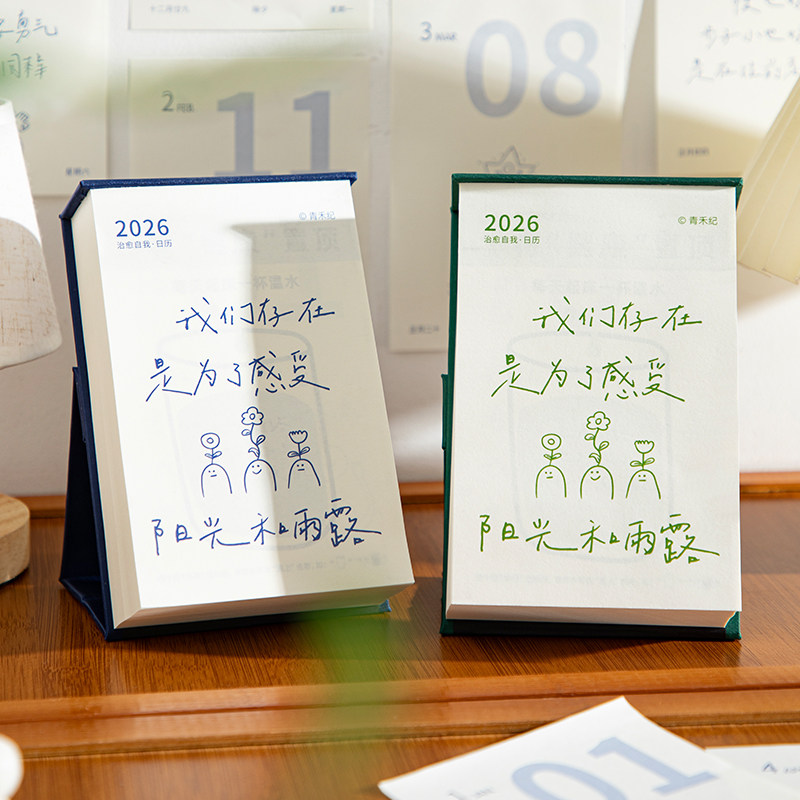 勇气
同样
星期六
2
11
3
08
2026
治愈自我·日历
© 青禾纪
我们存在
是为了感受
阳光和雨露
2026
治愈自我·日历
© 青禾纪
我们存在
是为了感受
阳光和雨露
01